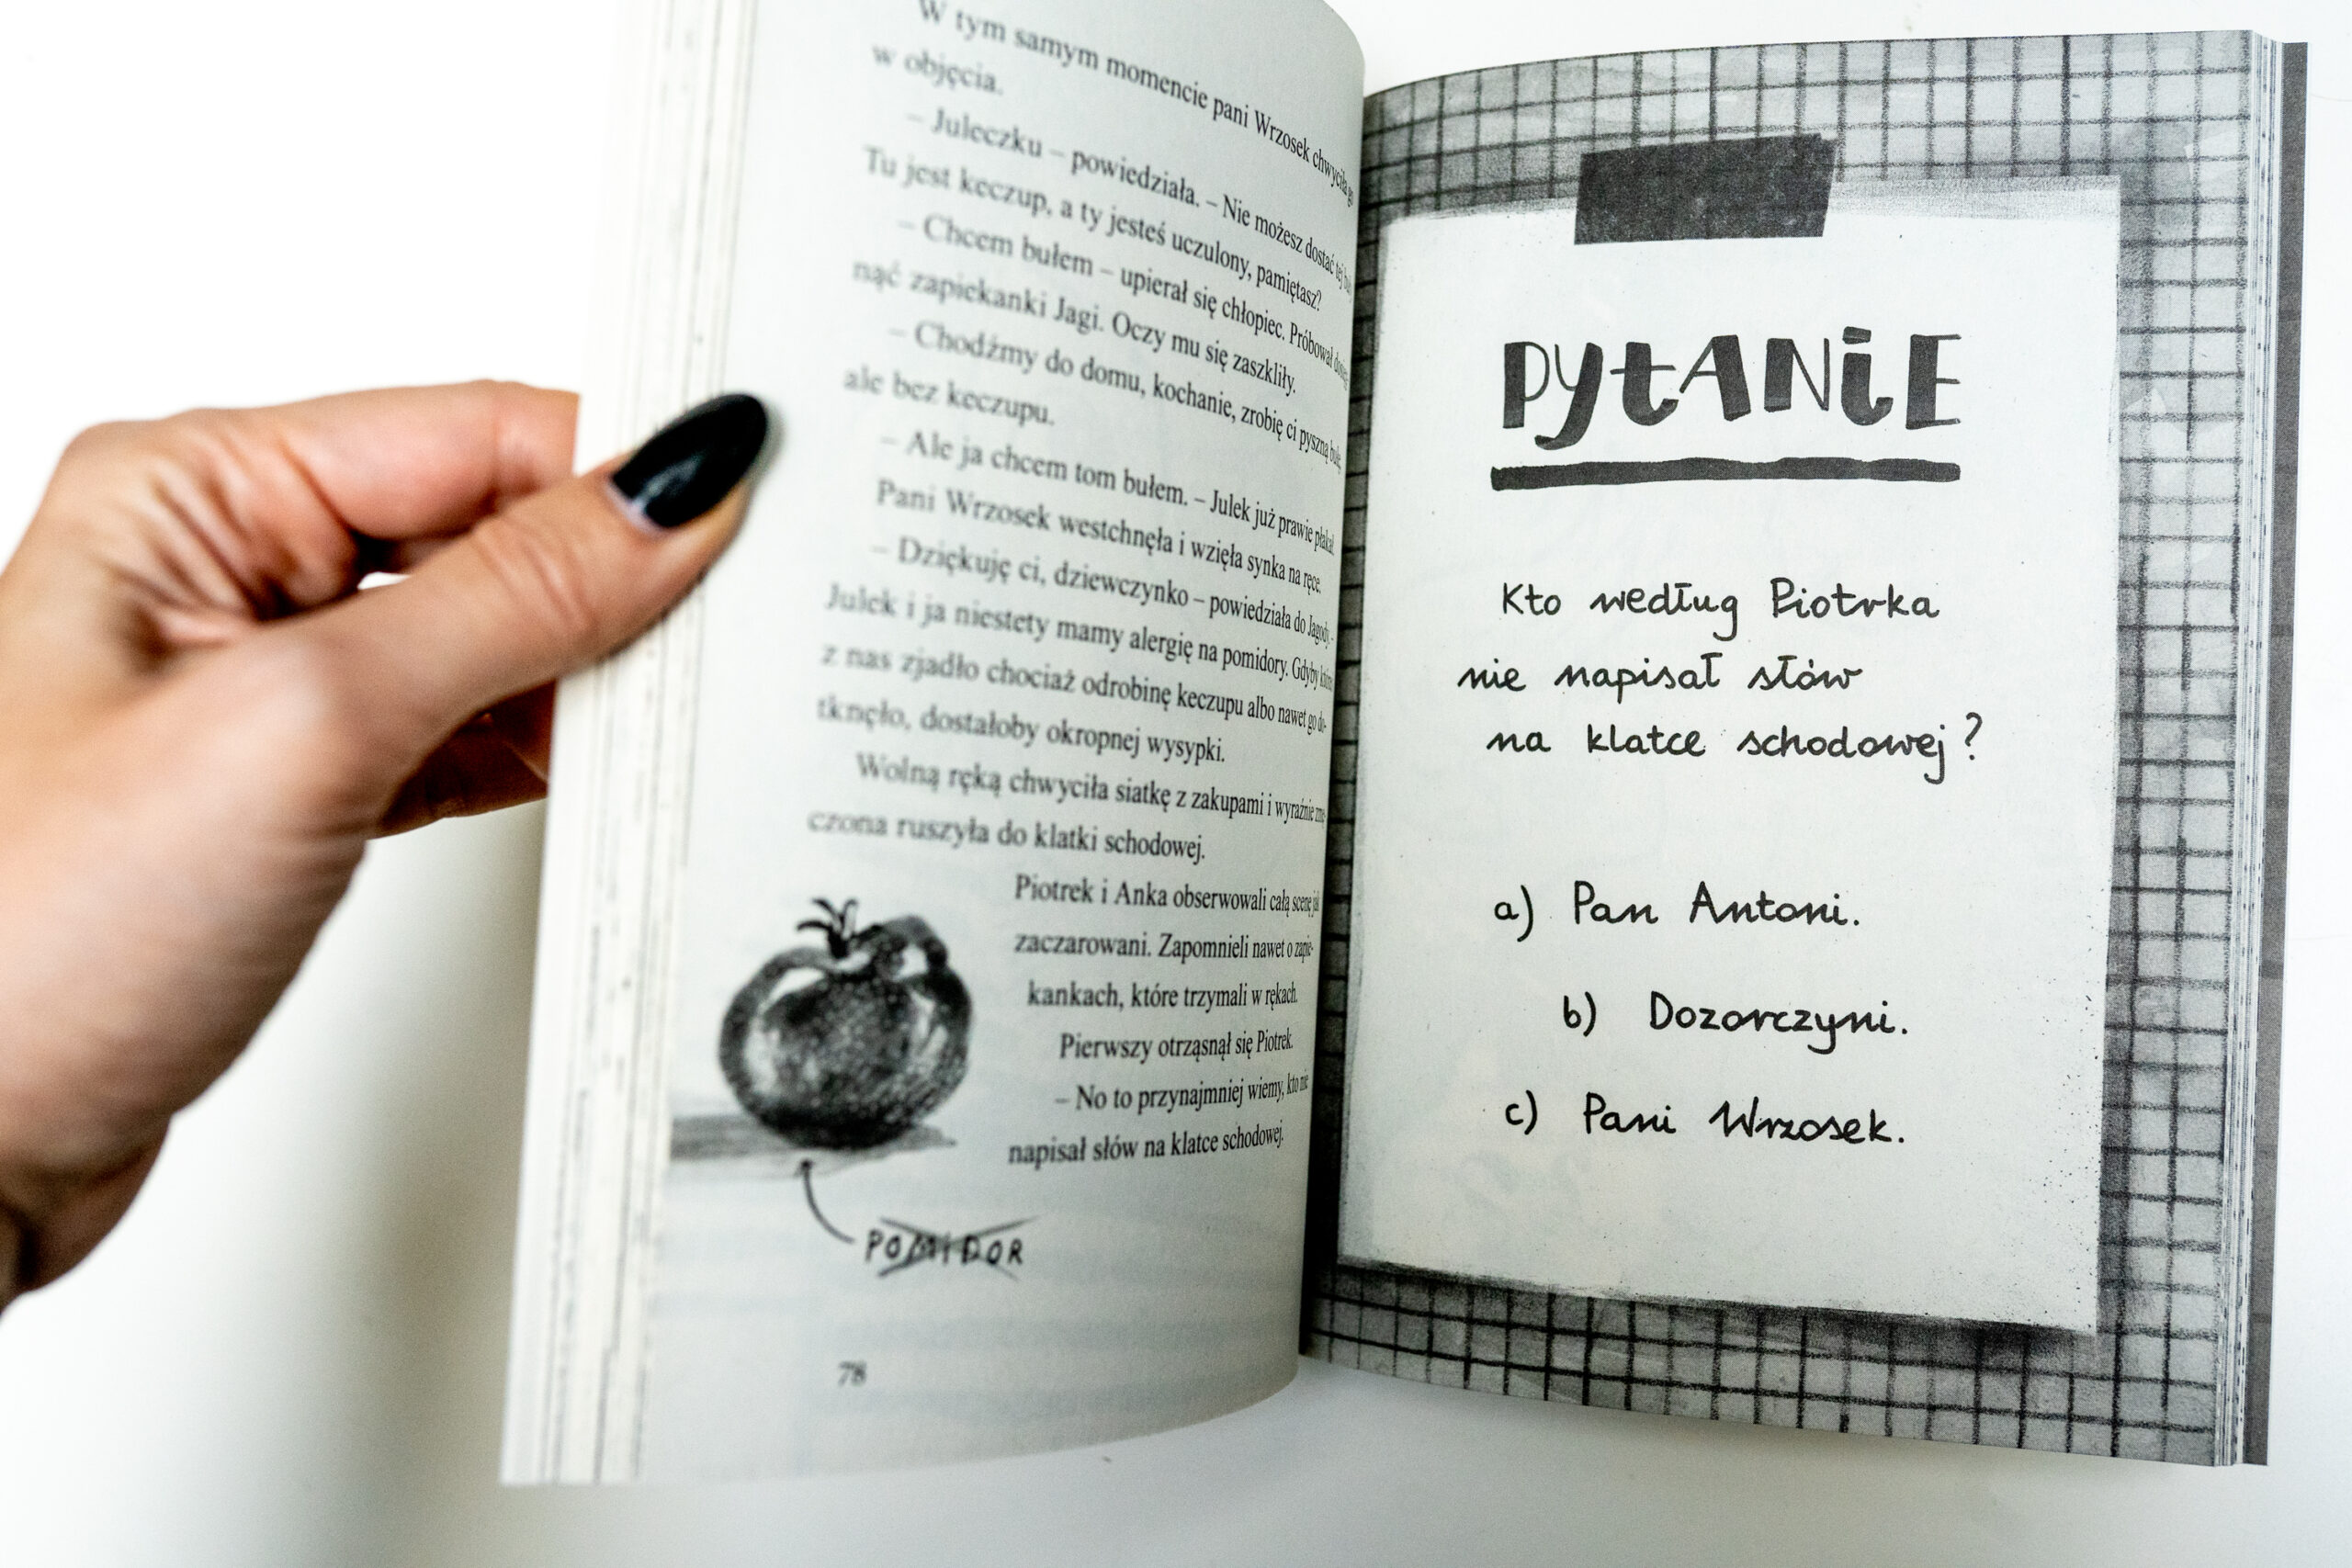 W tym samym momencie pani Wrzosek chwyciła go
w objęcia.
– Juleczku – powiedziała. – Nie możesz dostać tej
Tu jest keczup, a ty jesteś uczulony, pamiętasz?
– Chcem bułem – upierał się chłopiec. Próbował
nąć zapiekanki Jagi. Oczy mu się zaszkliły.
– Chodźmy do domu, kochanie, zrobię ci pyszną bułę,
ale bez keczupu.
– Ale ja chcem tom bułem. – Julek już prawie płakał.
Pani Wrzosek westchnęła i wzięła synka na ręce.
– Dziękuję ci, dziewczynko – powiedziała do Jagody. –
Julek i ja niestety mamy alergię na pomidory. Gdyby
z nas zjadło chociaż odrobinę keczupu albo nawet go do-
tknęło, dostałoby okropnej wysypki.
Wolną ręką chwyciła siatkę z zakupami i wyraźnie
czona ruszyła do klatki schodowej.
Piotrek i Anka obserwowali całą scenę jak
zaczarowani. Zapomnieli nawet o zapie-
kankach, które trzymali w rękach.
Pierwszy otrząsnął się Piotrek.
– No to przynajmniej wiemy, kto nie
napisał słów na klatce schodowej.
POMIDOR
78
PYTANIE
Kto według Piotrka
nie napisał słów
na klatce schodowej?
a) Pan Antoni.
b) Dozorczyni.
c) Pani Wrzosek.